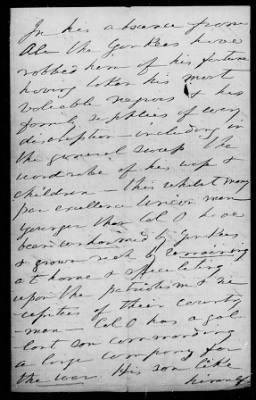 In his absence from
Ala the Yankees have
robbed him of his fortune
having taken his most
valuable negroes & his
family supplies of every
discription - including in
the general sweep the
wardrobe of his wife &
children - this whilst many
par excellence Union men
younger than Col O have
been unharmed by Yankees
& grown rich by remaining
at home & speculating
upon the patriotism & ne
cessities of their country
- men - Col O has a gal-
lant son commanding
a large company for
the war. His son like